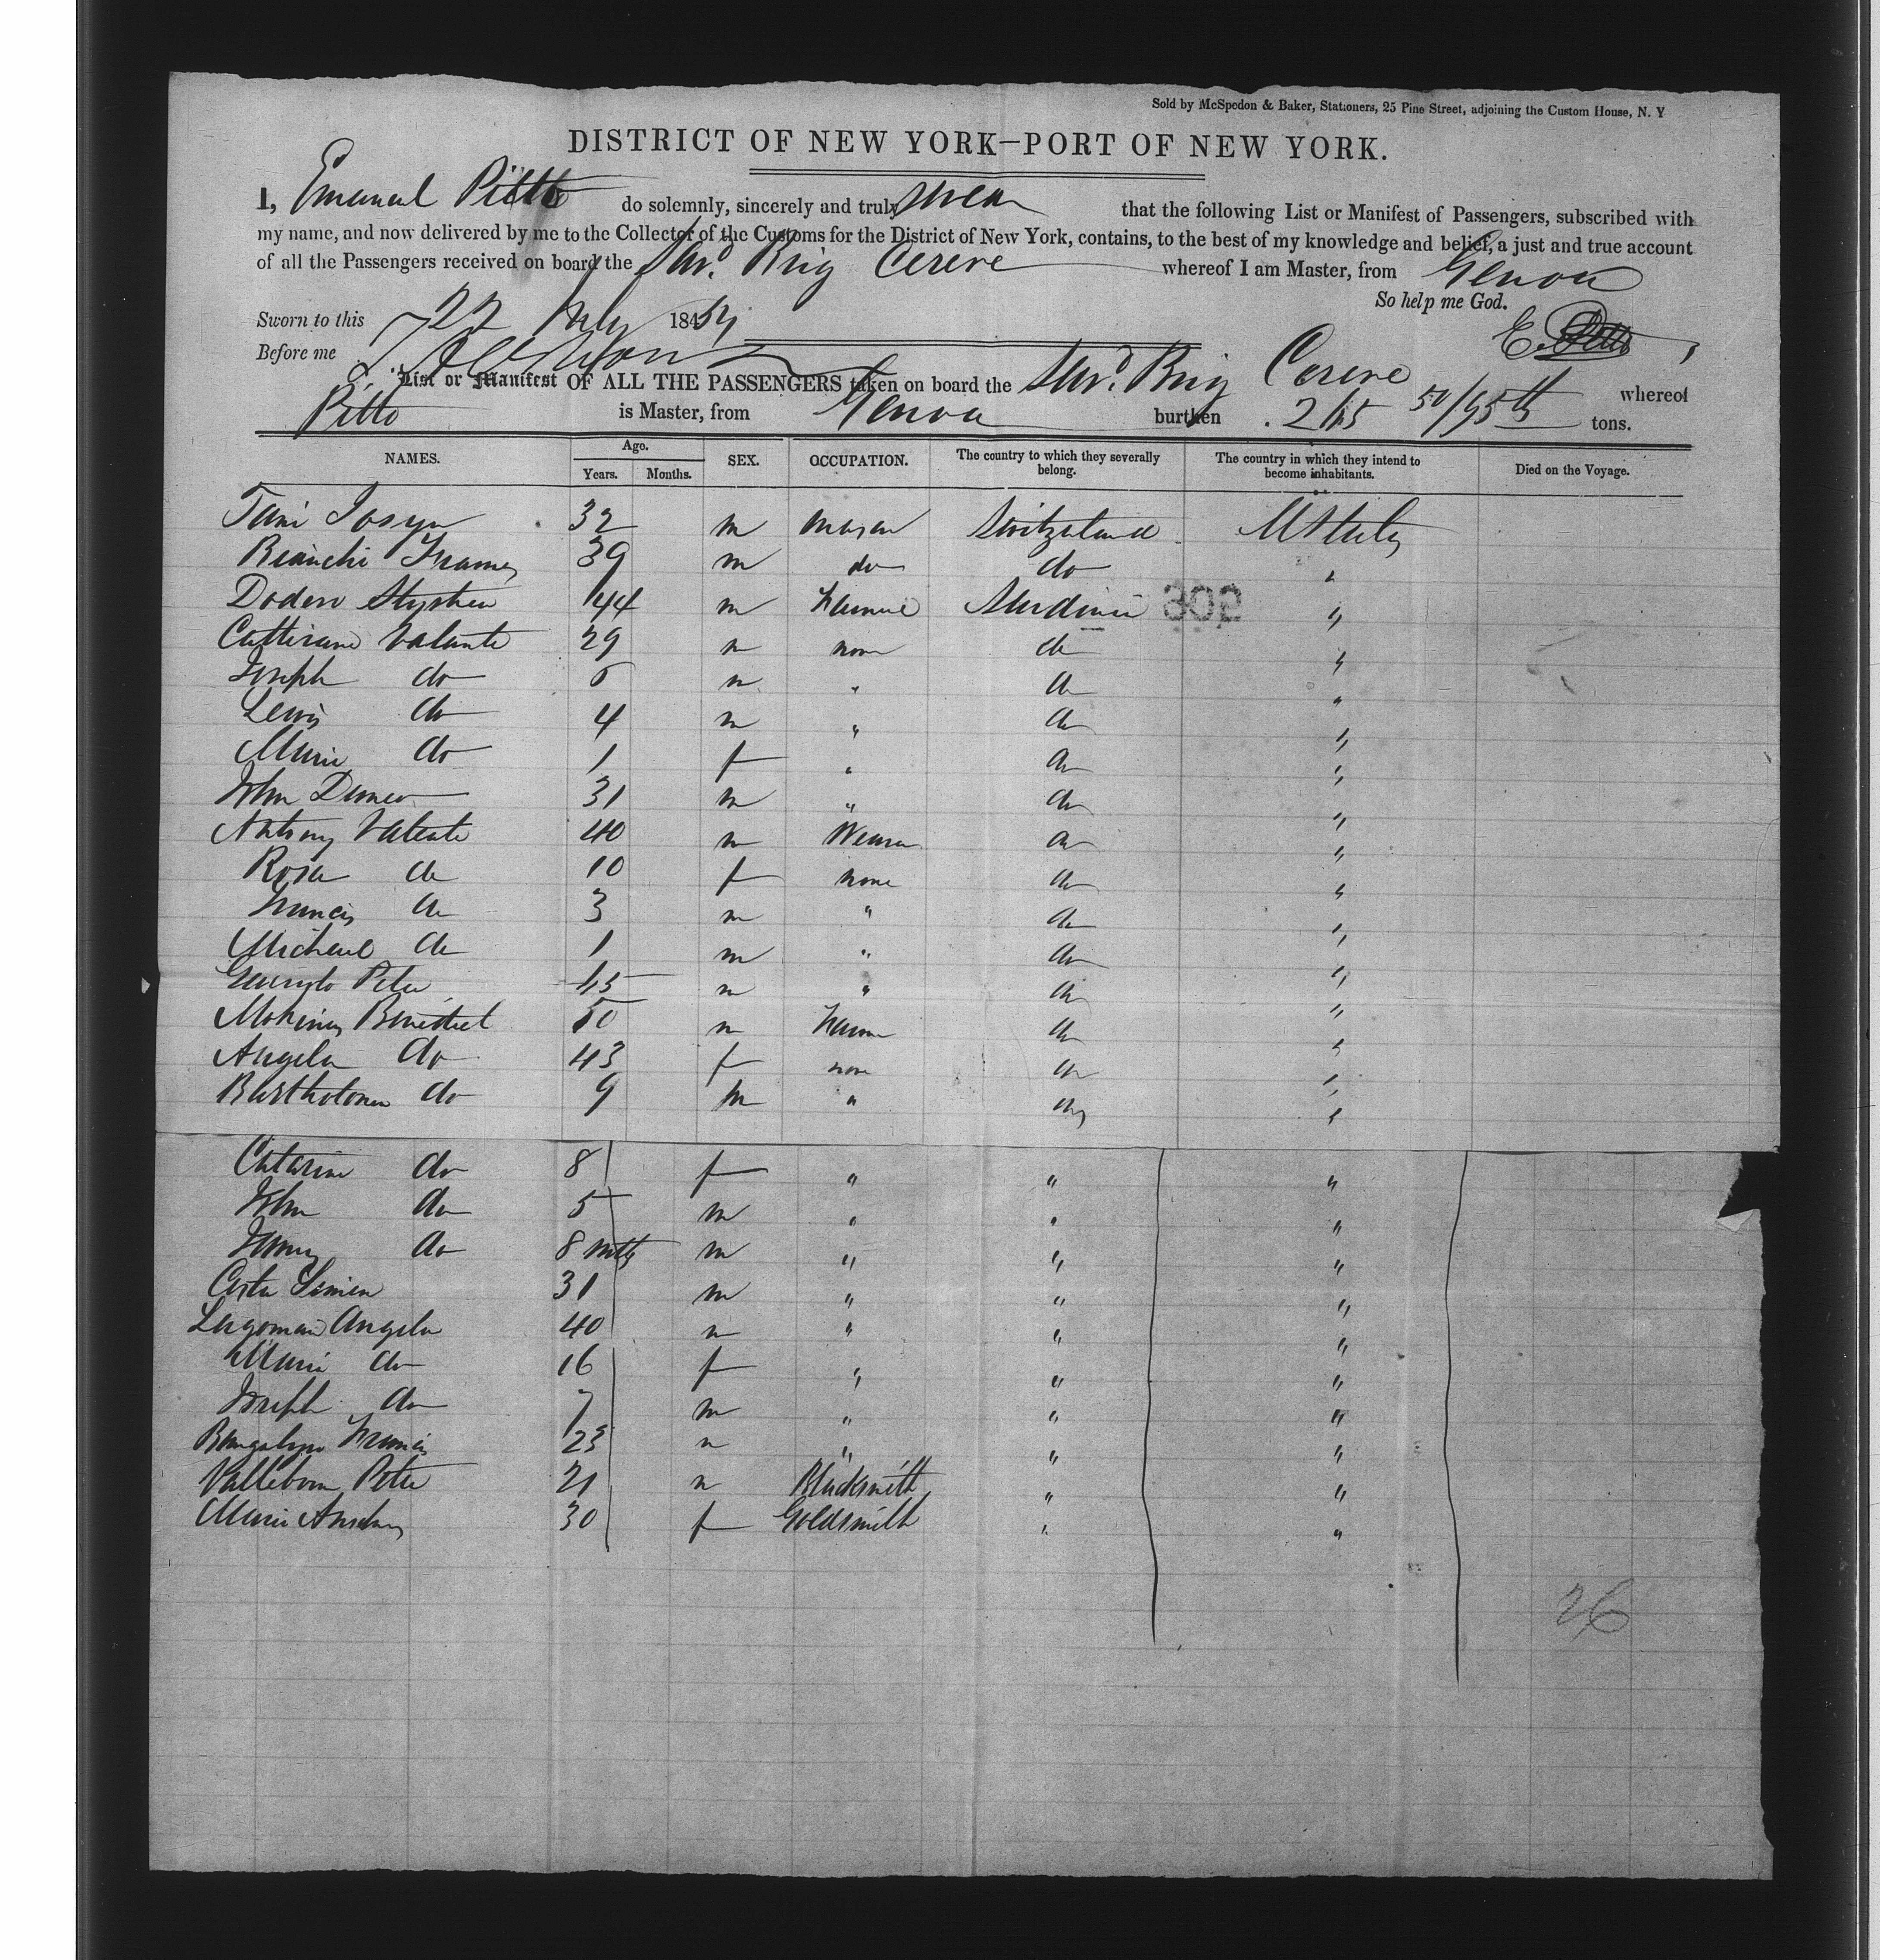 Sold by McSpedon & Baker, Stationers, 25 Pine Street, adjoining the Custom House, N. Y
DISTRICT OF NEW YORK—PORT OF NEW YORK.
I, Emanuel Pitto do solemnly, sincerely and truly swear that the following List or Manifest of Passengers, subscribed with
my name, and now delivered by me to the Collector of the Customs for the District of New York, contains, to the best of my knowledge and belief, a just and true account
of all the Passengers received on board the Sard. Brig Cerere whereof I am Master, from Genoa
So help me God.
Sworn to this 22 July 1854
Before me E. Pitto
List or Manifest OF ALL THE PASSENGERS taken on board the Sard. Brig Cerere whereof
Pitto is Master, from Genoa burthen 50/95th tons.
NAMES. Age. Years. Months. SEX. OCCUPATION. The country to which they severally belong. The country in which they intend to become inhabitants. Died on the Voyage.
32 m mason Switzerland U States
Bianchi 39 m do do "
Dodero Stephen 44 m Farmer Sardinia 302 "
Valente 29 m none do "
Joseph do m " do "
Lewis do 4 m " do "
Maria do 1 f " do "
John 31 m " do "
Antony Valente 40 m do "
Rosa do 10 f none do "
Francis do 3 m " do "
Michael do 1 m " do "
Peter 45 m " do "
Benedict 50 m Farmer do "
Angela do 43 f none do "
Bartholomew do 9 m " do "
Catarina do 8 f " " "
John do 5 m " " "
do 8 mths m " " "
Costa Simon 31 m " " "
Angela 40 m " " "
Maria do 16 f " " "
Joseph do 7 m " " "
Francis 23 m " " "
Vallebona Peter 21 m Blacksmith " "
Maria 30 f Goldsmith " "
26